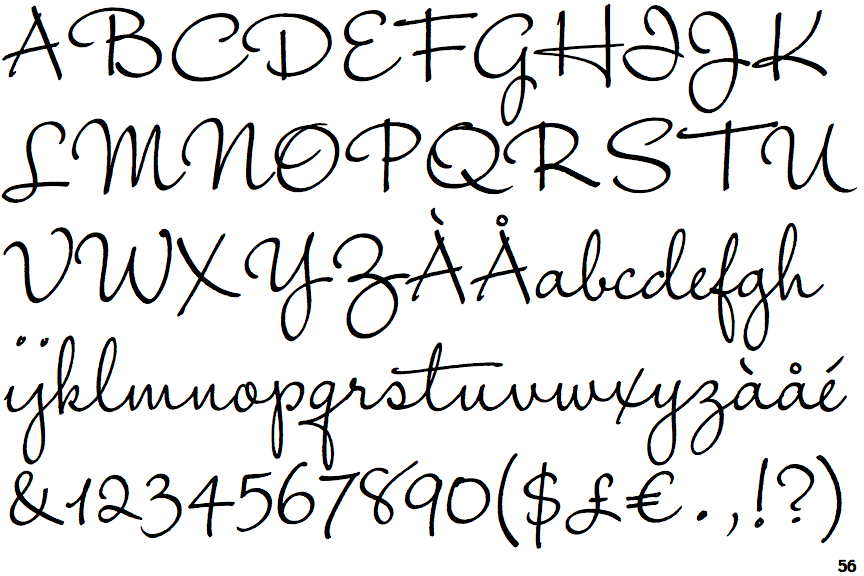 ABCDEFGHIJK
LMNOPQRSTU
VWXYZÀÅabcdefgh
ijklmnopqrstuvwxyzàåé
&1234567890($£€.,!?)
56